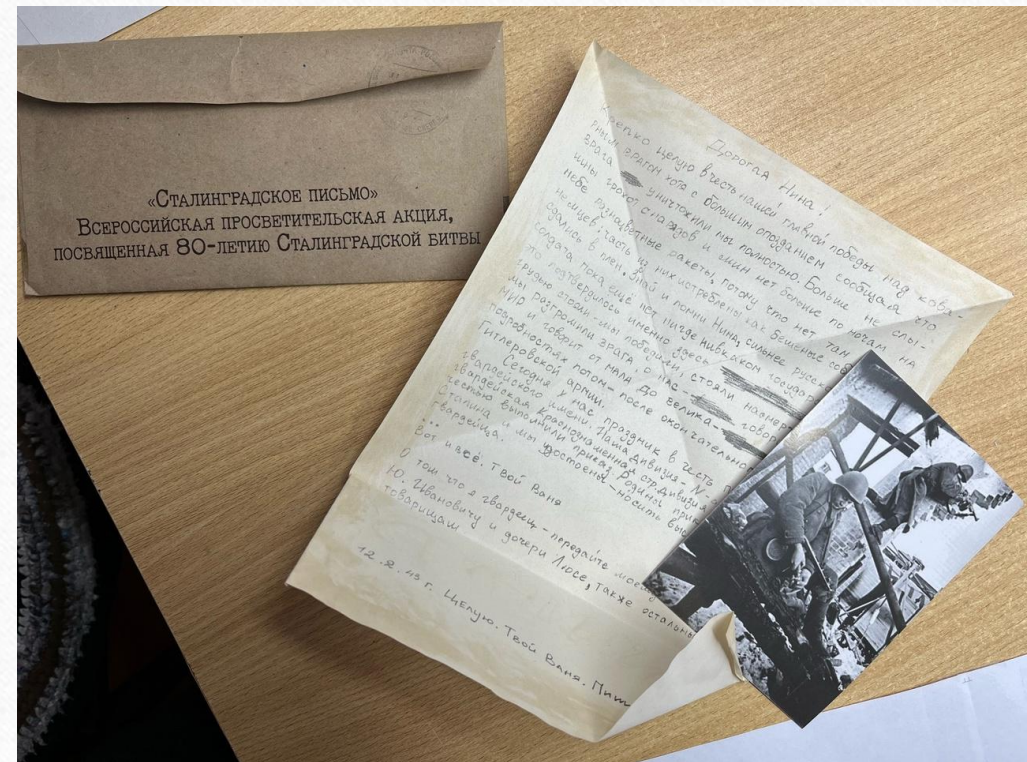 «Сталинградское письмо»
Всероссийская просветительская акция,
посвященная 80-летию Сталинградской битвы
Дорогая Нина!
Крепко целую в честь нашей главной победы над ковар-
ным врагом хотя с большим опозданием сообщаю что
врага уничтожили мы полностью. Больше не слы-
шны грохот снарядов и мин нет больше по ночам на
небе разноцветные ракеты, потому что нет там
немцев. Часть из них истреблены как бешеные соб
сдались в плен. Знай и помни Нина, сильнее русск
солдата пока ещё нет нигде ни в каком государ
это подтвердилось именно здесь стояли насмер
грудью стояли - мы победили,
мы разгромили врага, о нас говор
мир и говорит от мала до велика.
подробностях потом - после окончательно
Гитлеровской армии.
Сегодня у нас праздник в честь
гвардейского имени. Наша дивизия - N-
гвардейская Краснознаменная стр. дивизия
честью выполнили приказ Родины прик
Сталина и мы удостоены - носить выс
гвардейца.
Вот и всё. Твой Ваня
О том что я гвардеец - передайте моем
Ю. Ивановичу и дочери Люсе, также остальны
товарищам
12.2.43 г. Целую. Твой Ваня.